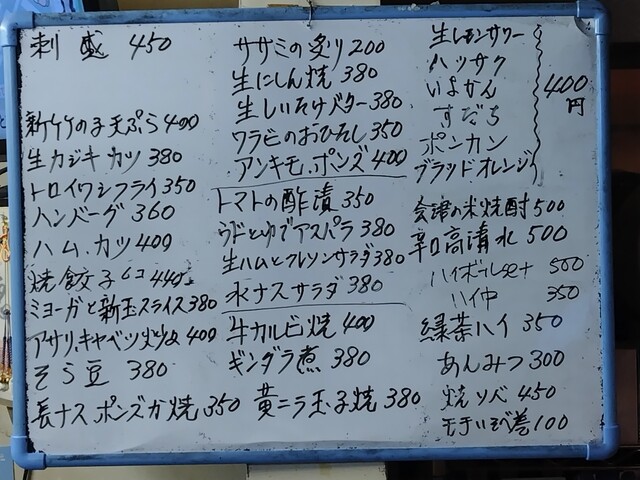 刺盛 450
新竹の子天ぷら 400
生カジキカツ 380
トロイワシフライ 350
ハンバーグ 360
ハム.カツ 400
焼餃子6コ 440
ミョーガと新玉スライス 380
アサリ.キャベツ炒め 400
そら豆 380
長ナスポンズガ焼 350
ササミの炙り 200
生にしん焼 380
生しいたけバター 380
ワラビのおひたし 350
アンキモ.ポンズ 400
トマトの酢漬 350
ウドとゆでアスパラ 380
生ハムとクレソンサラダ 380
水ナスサラダ 380
牛カルビ焼 400
ギンダラ煮 380
黄ニラ玉子焼 380
生レモンサワー
ハッサク
いよかん
すだち
ポンカン
ブラッドオレンジ
400円
会津の米焼酎 500
辛口高清水 500
ハイボールセット 500
ハイ中 350
緑茶ハイ 350
あんみつ 300
焼ソバ 450
モチいそべ巻 100